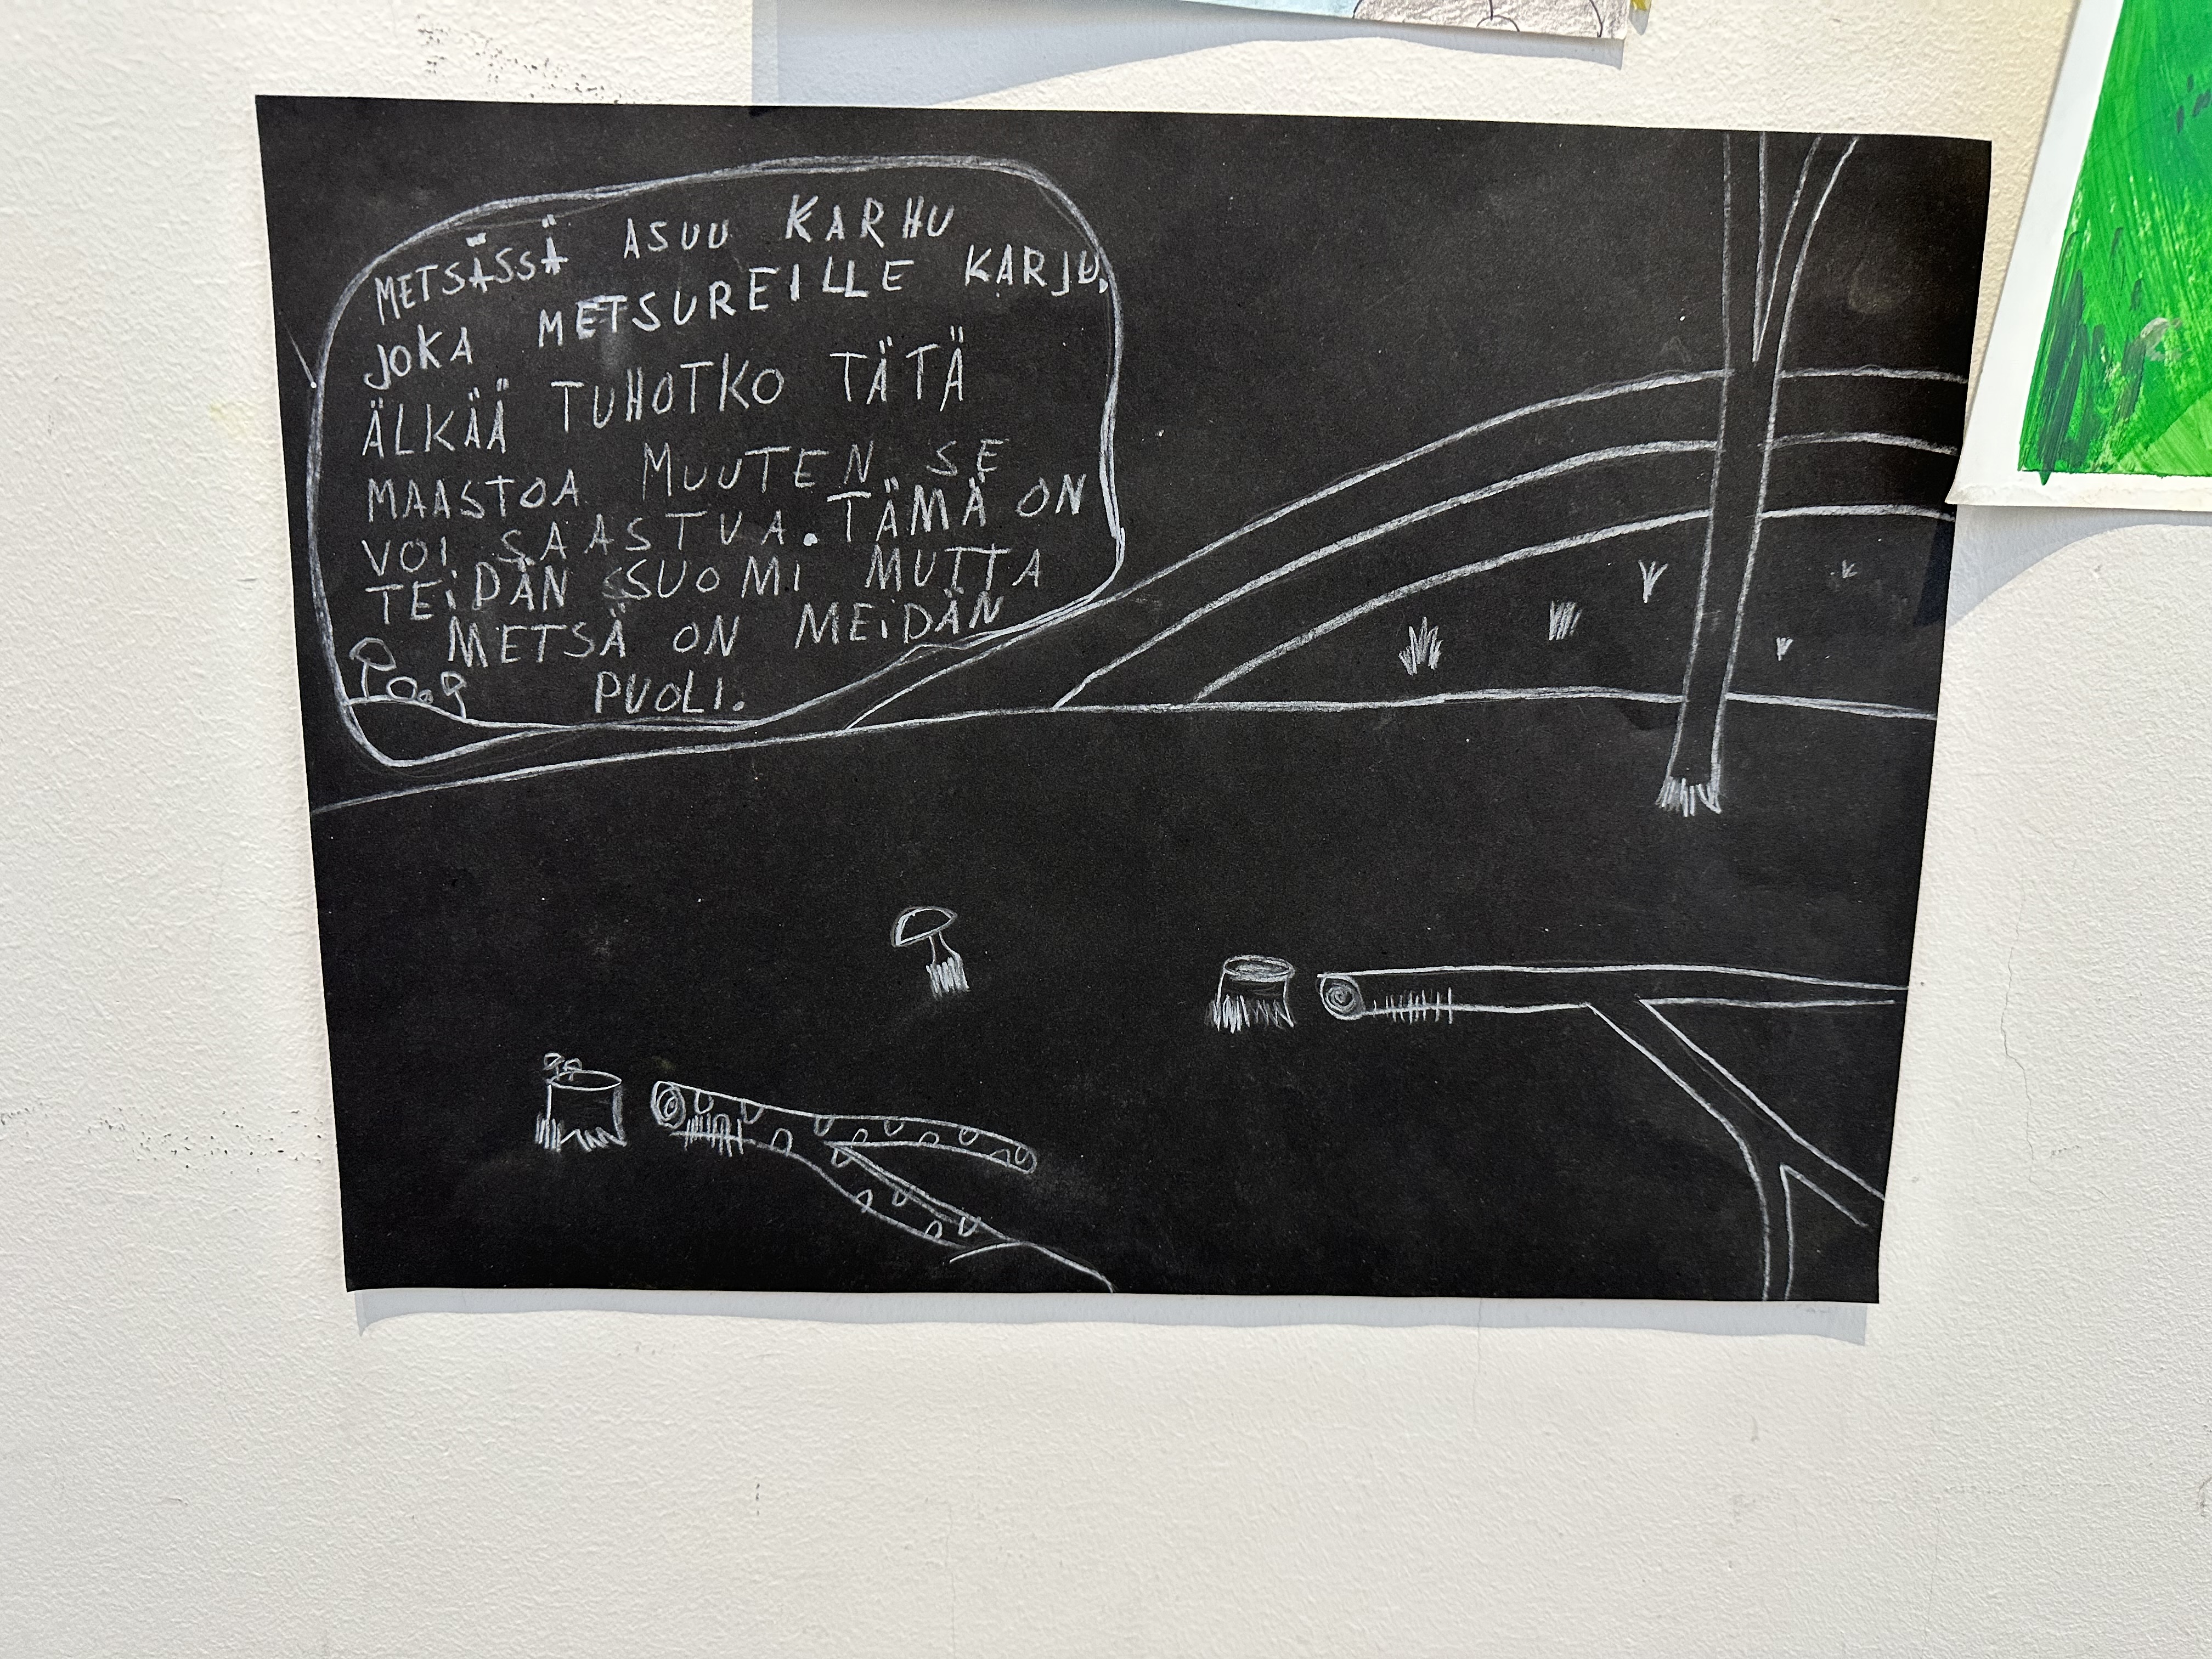 METSÄSSÄ ASUU KARHU
JOKA METSUREILLE KARJU.
ÄLKÄÄ TUHOTKO TÄTÄ
MAASTOA MUUTEN SE
VOI SAASTUA. TÄMÄ ON
TEiDÄN SUOMi MUTTA
METSÄ ON MEiDÄN
PUOLI.